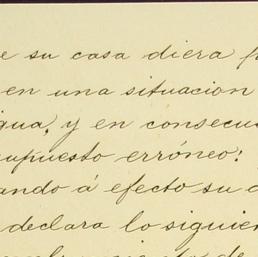 e su casa diera f
en una situacion
gua, y en consecu
supuesto erróneo:
ando á efecto su d
declara lo siguien